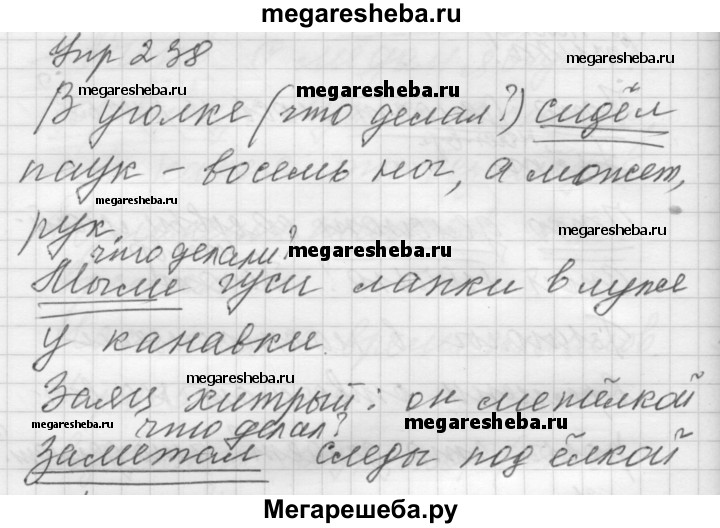 megaresheba.ru
Упр 238
megaresheba.ru
megaresheba.ru
megaresheba.ru
В уголке (что делал?) сидел
паук - восемь ног, а может,
рук.
что делали?
megaresheba.ru
Мыли гуси лапки в луже
у канавки.
megaresheba.ru
Заяц хитрый: он метёлкой
megaresheba.ru
что делал?
megaresheba.ru
Заметал следы под ёлкой
Мегарешеба.ру